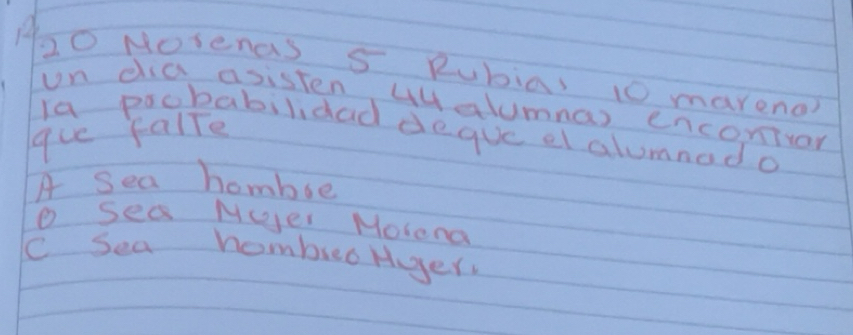 20 Morenas 5 Rubias 10 marenos
un dia asisten 44 alumnas encontrar
la probabilidad deque el alumnado
que falte
A sea hombre
B sea Mujer Morena
C sea hombreo Mujer.